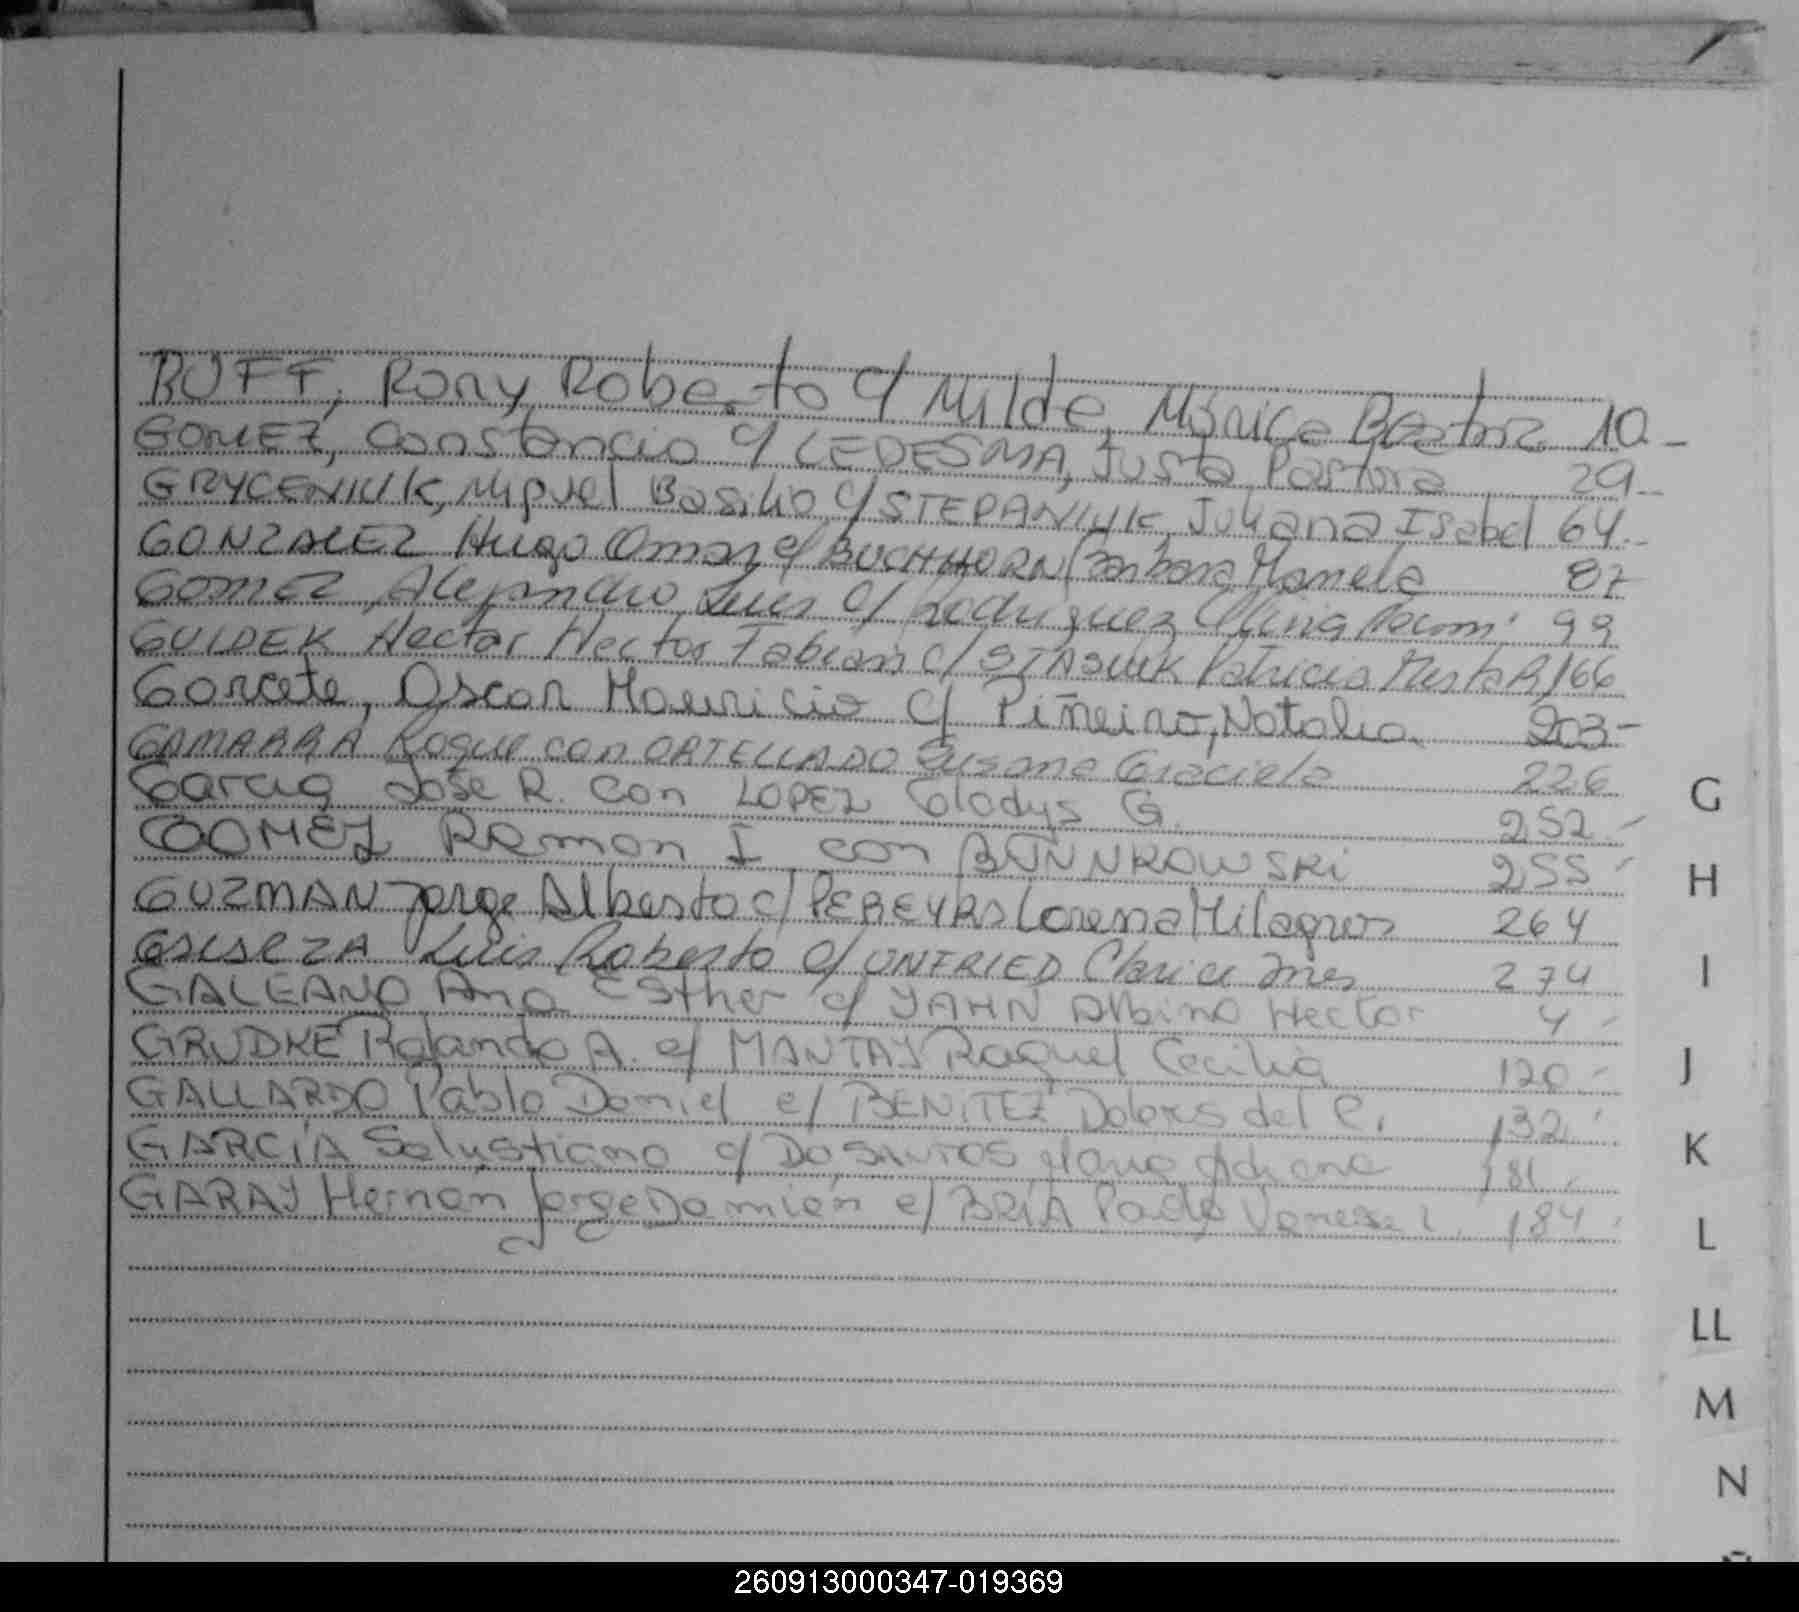 RUFF, Rony Roberto c/ Milde, Mónica Beatriz 10 -
GOMEZ, Constancio c/ LEDESMA, Justa Pastora 29 -
GRYCENIUK, Miguel Basilio c/ STEPANIUK Juliana Isabel 64 -
GONZALEZ Hugo Omar c/ BUCHHORN Barbara Mamela 87
GOMEZ, Alejandro Luis c/ Rodriguez 99
GUIDEK Hector Hector Fabian c/ STASIUK Patricia 166
Gorcete, Oscar Mauricio c/ Piñeiro, Natalia 203 -
GAMARRA Roque con ORTELLADO Susana Graciela 226
Garcia José R. con LOPEZ Gladys G. 252 -
GOMEZ Ramon I con BUNNKOWSKI 255 -
GUZMAN Jorge Alberto c/ PEREYRA Lorena Milagros 264
Luis Roberto c/ UNFRIED Claricia Ines 274
GALEANO Ana Esther c/ YAHN Albino Hector 4 -
GRUDKE Rolando A. c/ MANTAY Raquel Cecilia 120 -
GALLARDO Pablo Daniel c/ BENITEZ Dolores del C. 132
GARCÍA Salustiano c/ DO SANTOS Maria Adriana 181
GARAY Hernan Jorge Damián c/ BRÍA Paola Vanesa L. 184
G
H
I
J
K
L
LL
M
N
260913000347-019369